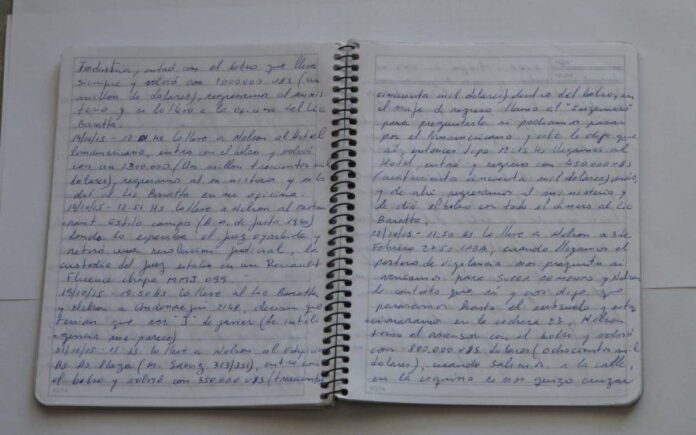 Industria, entró con el bolso que lleva
siempre y volvió con 1000.000 U$S (un
millon de dolares), regresamos al minis
terio y se lo llevo a la oficina del Lic
Baratta.
14/10/15 - 12 Hs lo lleve a Nelson al hotel
Panamericano, entro con el bolso y volvió
con un 1300.000 (Un millon trescientos mil
dolares), regresamos al ministerio y
del Lic Baratta en su oficina.
19/10/15 - 12:51 Hs lo lleve a Nelson al restau
rant estilo campo (A. M. de Justo 1840)
donde lo esperaba el Juez Oyarbide y
retiró una resolucion judicial, la
custodia del Juez estaba en un Renault
Fluence chapa MMJ 099.
19/10/15 - 19:50 Hs lo lleve al Lic Baratta
y Nelson a Gdor 2148, decian que
tenian que ver "J" de Javier (de inteli
gencia me parece)
21/10/15 - Hs lo lleve a Nelson al
Bs As Plaza (M. Saenz 323/251), entro con
el bolso y volvió con 350.000 U$S (trescientos
cincuenta mil dolares) dentro del bolso, en
el viaje de regreso llamo al "Ingeniero"
para preguntarle si podiamos pasar
por el Panamericano, y este le dijo que
si, entonces tipo Hs llegamos al
Hotel, entró y regreso con 450.000 U$S
(cuatrocientos cincuenta mil dolares),
y de ahi regresamos al ministerio y
le dió el bolso con todo el dinero al Lic
Baratta.
22/10/15 - 11,50 Hs lo lleve a Nelson a 3 de
Febrero cuando llegamos el
portero de vigilancia nos pregunta si
veniamos para y Nelson
le contesto que si y nos dijo, que
pasaramos hasta el subsuelo y esta
cionaramos en la cochera 23, Nelson
tomo el ascensor con el bolso y volvió
con 800.000 U$S dolares (ochocientos mil
dolares), cuando salimos a la calle,
en la esquina no nos quizo cruzar